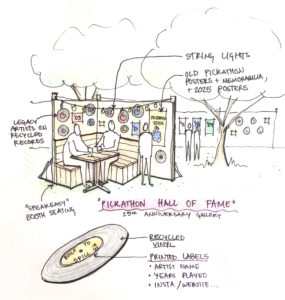 STRING LIGHTS
OLD PICKATHON
POSTERS + MEMORABILIA,
+ 2025 POSTERS
LEGACY
ARTISTS ON
RECYCLED
RECORDS
"SPEAKEASY"
BOOTH SEATING
"PICKATHON HALL OF FAME"
25th ANNIVERSARY GALLERY
BUILT TO
SPILL
RECYCLED
VINYL
PRINTED LABELS
• ARTIST NAME
• YEARS PLAYED
• INSTA/WEBSITE...